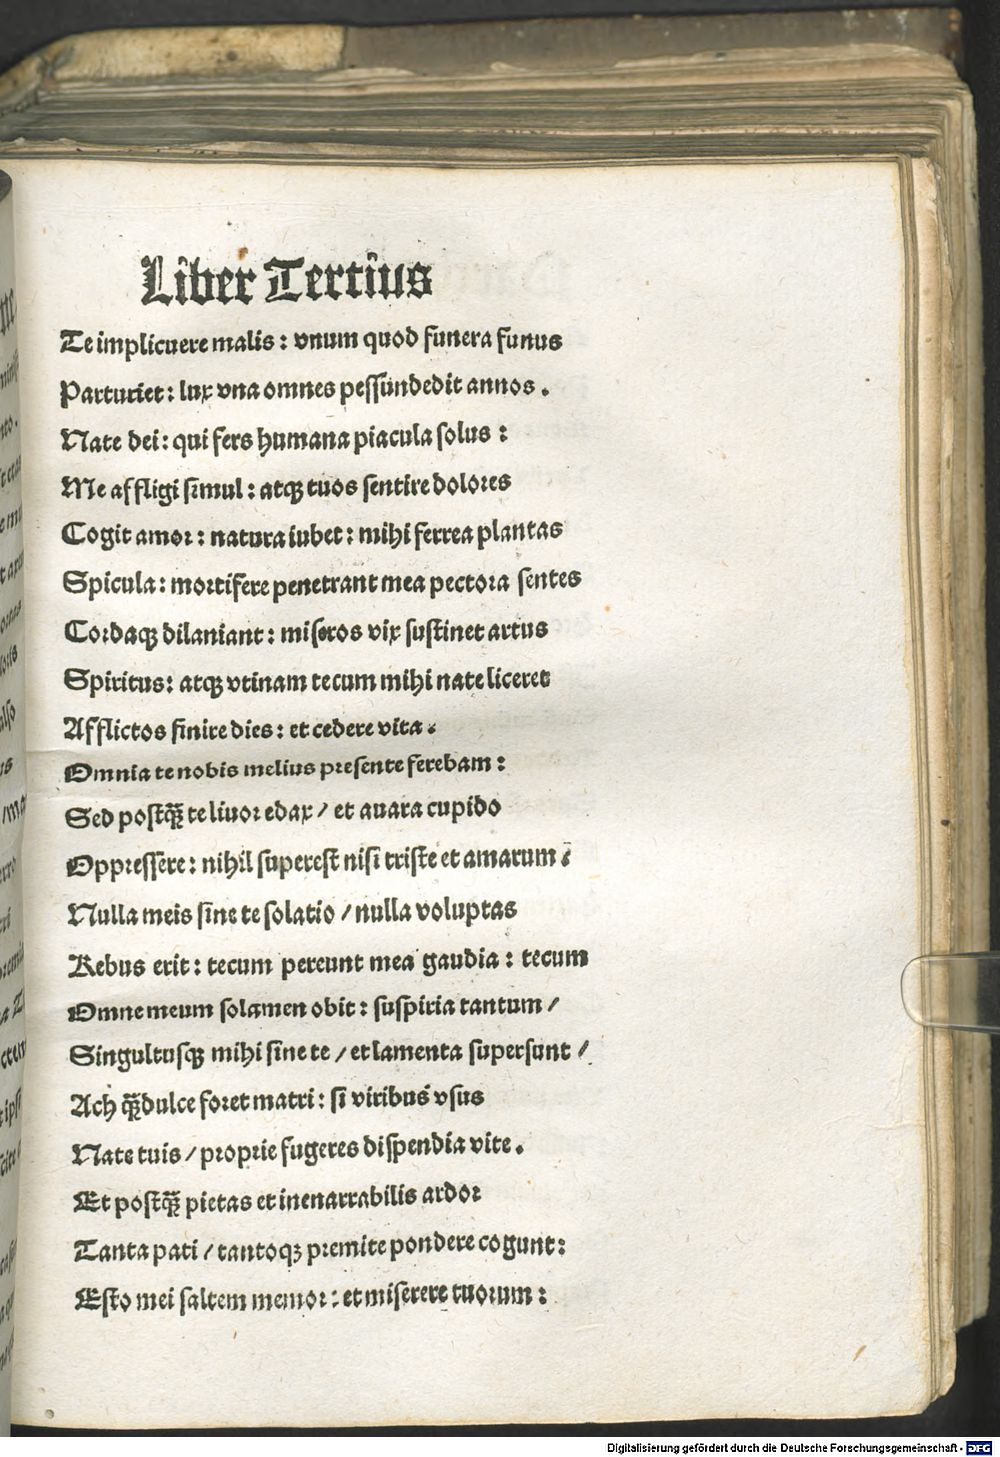 Liber Tertius
Te implicuere malis : vnum quod funera funus
Parturiet : lux vna omnes pessundedit annos .
Nate dei : qui fers humana piacula solus :
Me affligi simul : atqꝫ tuos sentire dolores
Cogit amor : natura iubet : mihi ferrea plantas
Spicula : mortifere penetrant mea pectora sentes
Cordaqꝫ dilaniant : miseros vix sustinet artus
Spiritus : atqꝫ vtinam tecum mihi nate liceret
Afflictos finire dies : et cedere vita .
Omnia te nobis melius presente ferebam :
Sed postq̃ te liuor edax / et auara cupido
Oppressere : nihil superest nisi triste et amarum /
Nulla meis sine te solatio / nulla voluptas
Rebus erit : tecum pereunt mea gaudia : tecum
Omne meum solamen obit : suspiria tantum /
Singultusqꝫ mihi sine te / et lamenta supersunt /
Ach q̃ dulce foret matri : si viribus vsus
Nate tuis / proprie fugeres dispendia vite .
Et postq̃ pietas et inenarrabilis ardor
Tanta pati / tantoqꝫ premite pondere cogunt :
Esto mei saltem memor : et miserere tuorum :
Digitalisierung gefördert durch die Deutsche Forschungsgemeinschaft - DFG